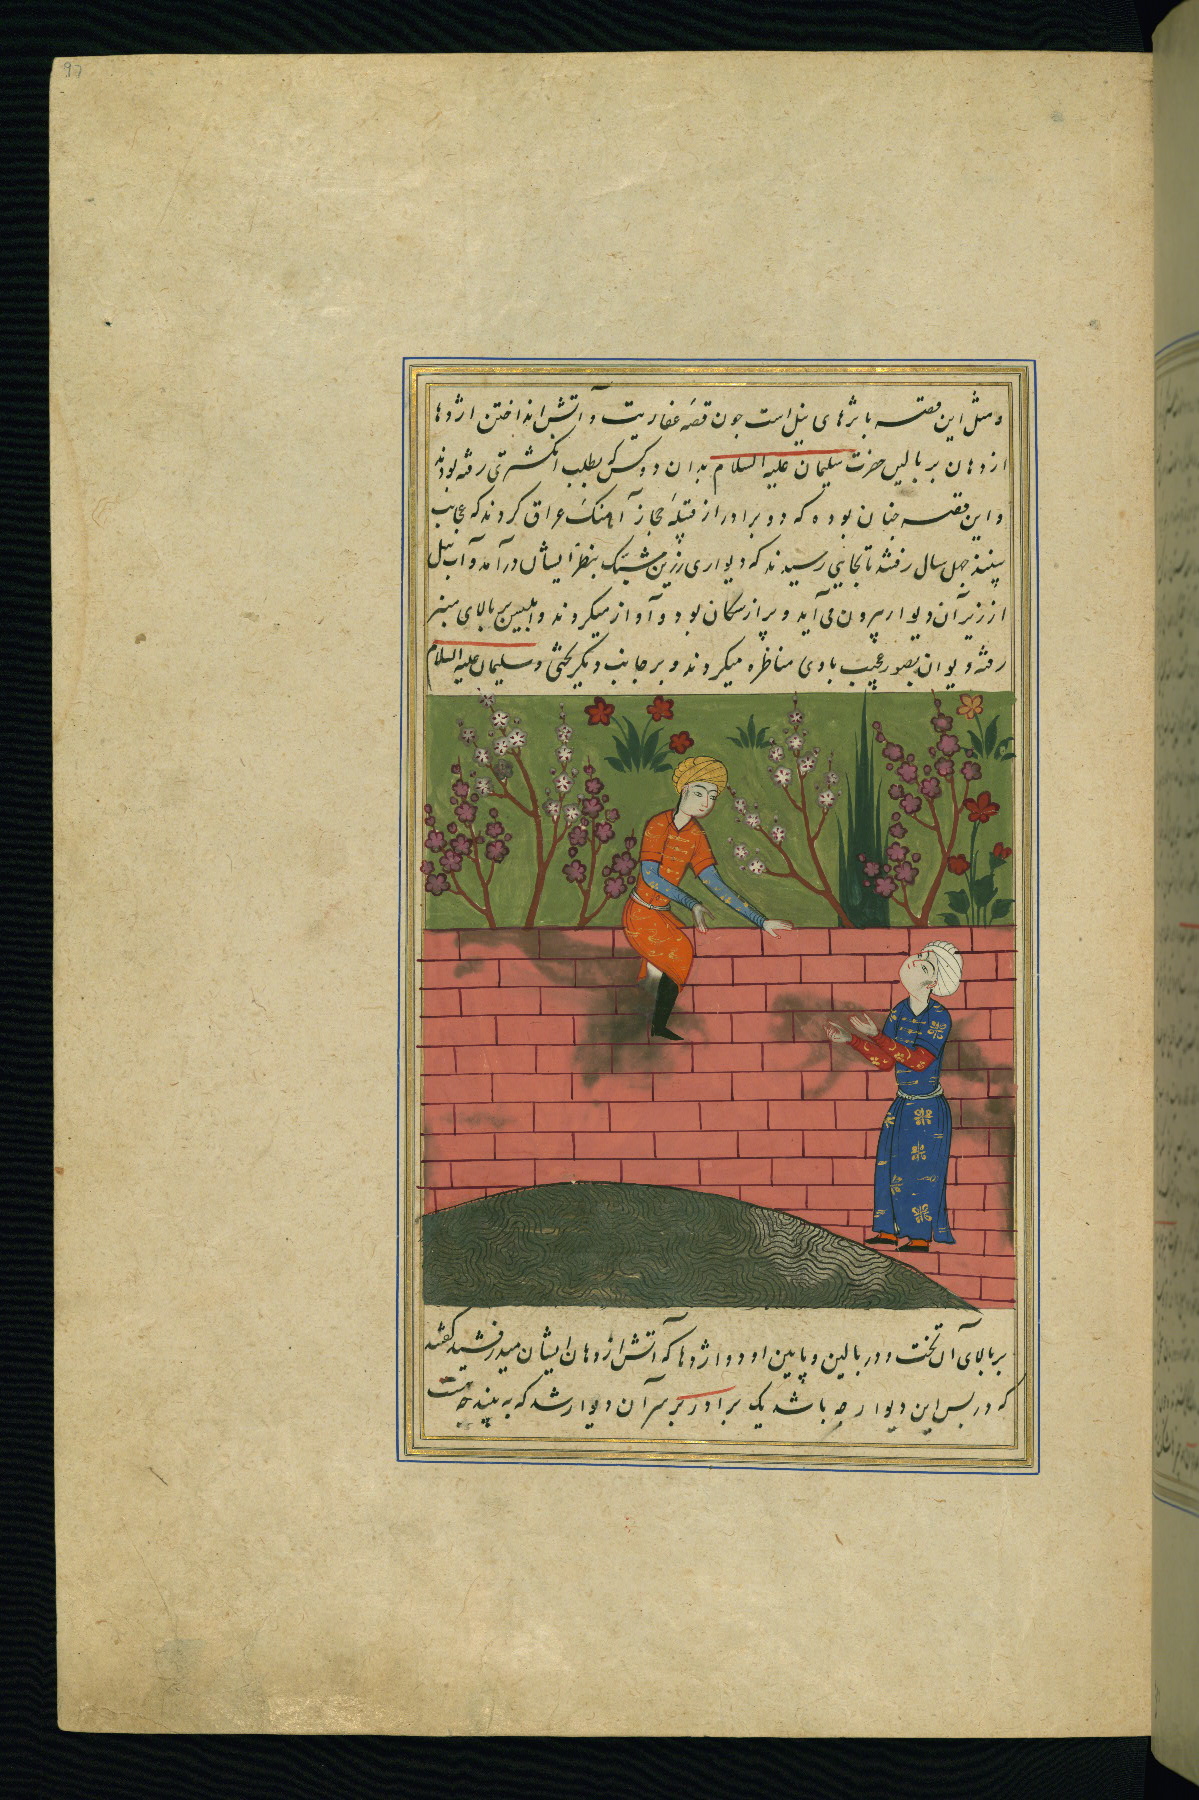 97
و مثل این قصه با بژهای نیل است جون قصه عفاریت و آتش انداختن اژدها
از دهان بر بالین حضرت سلیمان علیه السلام بدان دو کس که بطلب انکشتری رفته بودند
و این قصه جنان بوده که دو برادر از قبیله حجاز آهنک عراق کردند که عجایب
بینند جهل سال رفتند تا بجایی رسیدند که دیواری زرین مشبک بنظر ایشان درآمد و آب نیل
از زیر آن دیوار بیرون می آید و پر از سکان بود و آواز میکردند و ابلیس بر بالای منبر
رفته و دیوان بصور عجیب با وی مناظره میکردند و بر جانب دیکر تختی و سلیمان علیه السلام
بر بالای آن تخت و در بالین و پایین او دو اژدها که آتش از دهان ایشان میدرفشید کفتند
که در بس این دیوار جه باشد یک برادر بر سر آن دیوار شد که به بیند جیست